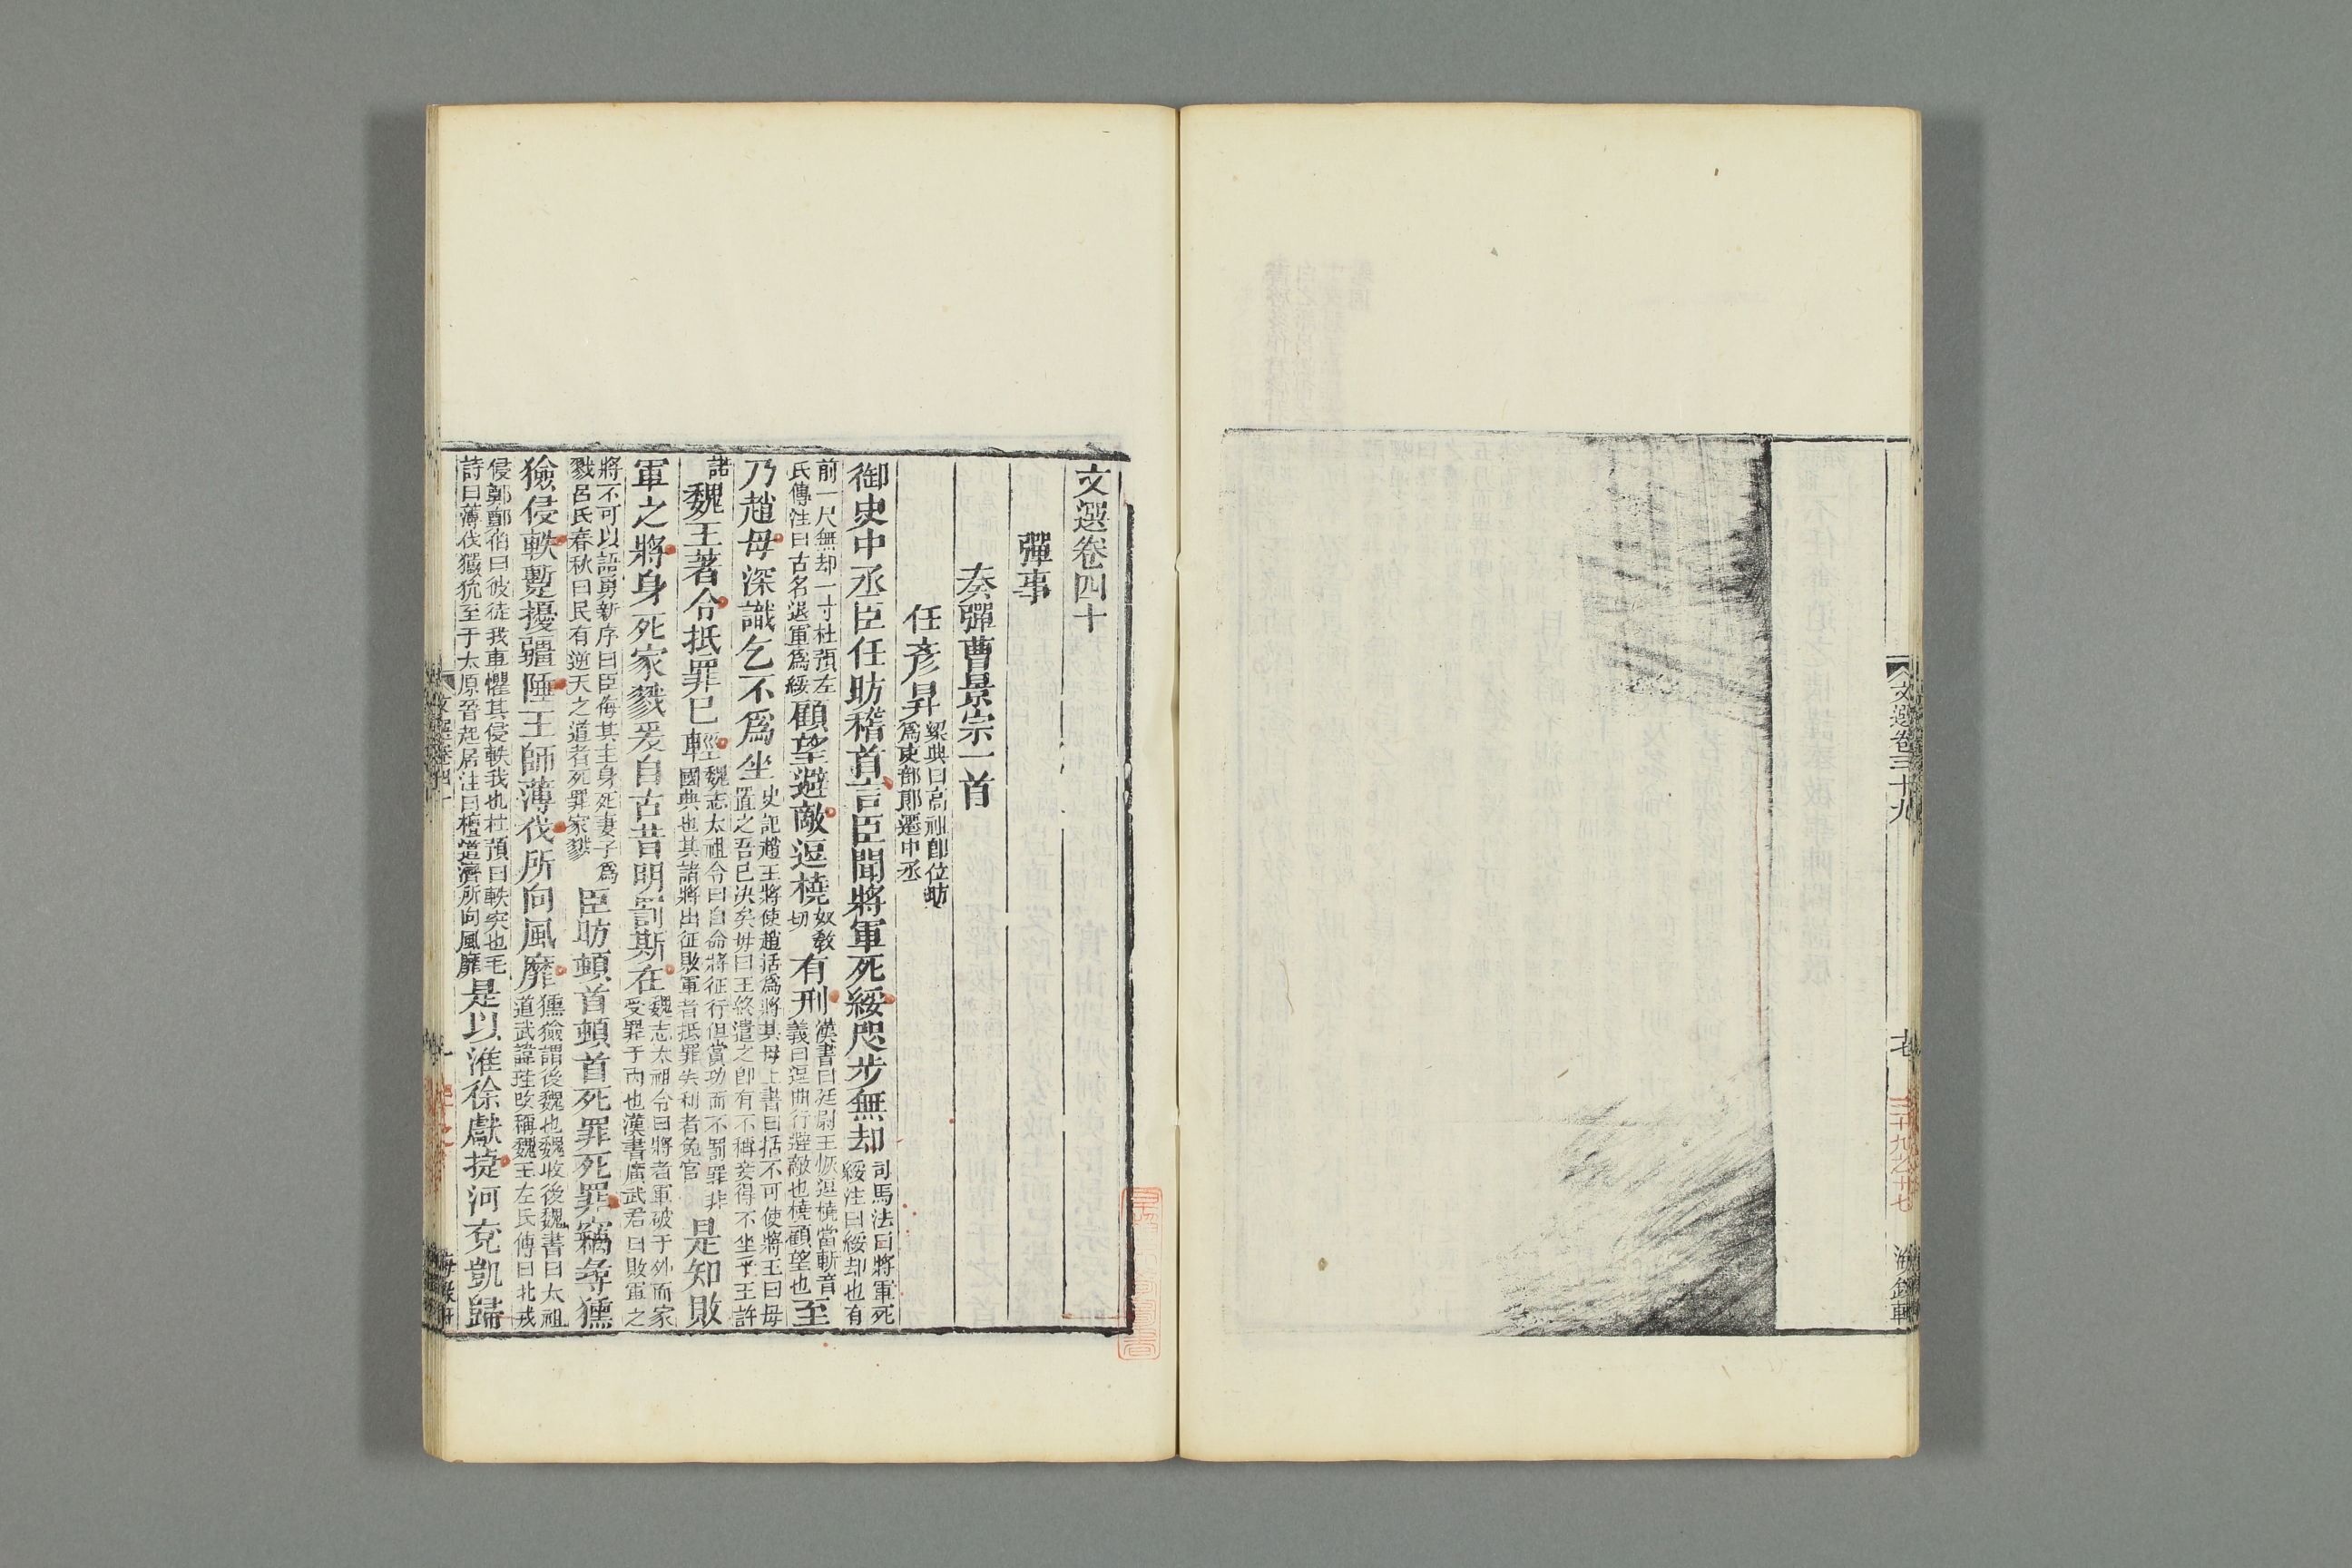 文選卷三十九
十七
三十九之十七
海錄軒
文選卷四十
彈事
奏彈曹景宗一首
任彦昇
梁典曰高祖卽位昉
爲吏部郎遷中丞
御史中丞臣任昉稽首言臣聞將軍死綏咫步無却
司馬法曰將軍死
綏注曰綏却也有
前一尺無却一寸杜預左
氏傳注曰古名退軍爲綏
顧望避敵逗橈
奴敎
切
有刑
漢書曰廷尉王恢逗橈當斬音
義曰逗曲行避敵也橈顧望也
至
乃趙母深識乞不爲坐
史記趙王將使趙括爲將其母上書曰括不可使將王曰母
置之吾已決矣母曰王終遣之卽有不稱妾得不坐乎王許
諾
魏王著令抵罪已輕
魏志太祖令曰自命將征行但賞功而不罰罪非
國典也其諸將出征敗軍者抵罪失利者免官
是知敗
軍之將身死家戮爰自古昔明罰斯在
魏志太祖令曰將者軍破于外而家
受罪于內也漢書廣武君曰敗軍之
將不可以語勇新序曰臣侮其主身死妻子爲
戮呂氏春秋曰民有逆天之道者死罪家戮
臣昉頓首頓首死罪死罪竊尋獯
獫侵軼蹔擾疆陲王師薄伐所向風靡
獯獫謂後魏也魏收後魏書曰太祖
道武諱珪改稱魏王左氏傳曰北戎
侵鄭鄭伯曰彼徒我車懼其侵軼我也杜預曰軼突也毛
詩曰薄伐玁狁至于太原晉起居注曰檀道濟所向風靡
是以淮徐獻捷河兖凱歸
文選卷四十
一